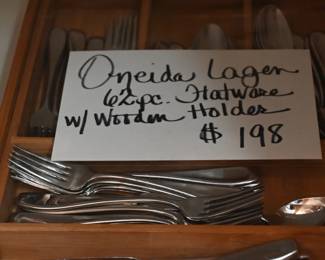 Oneida Lagen
62pc. Flatware
w/ Wooden Holder
$ 198